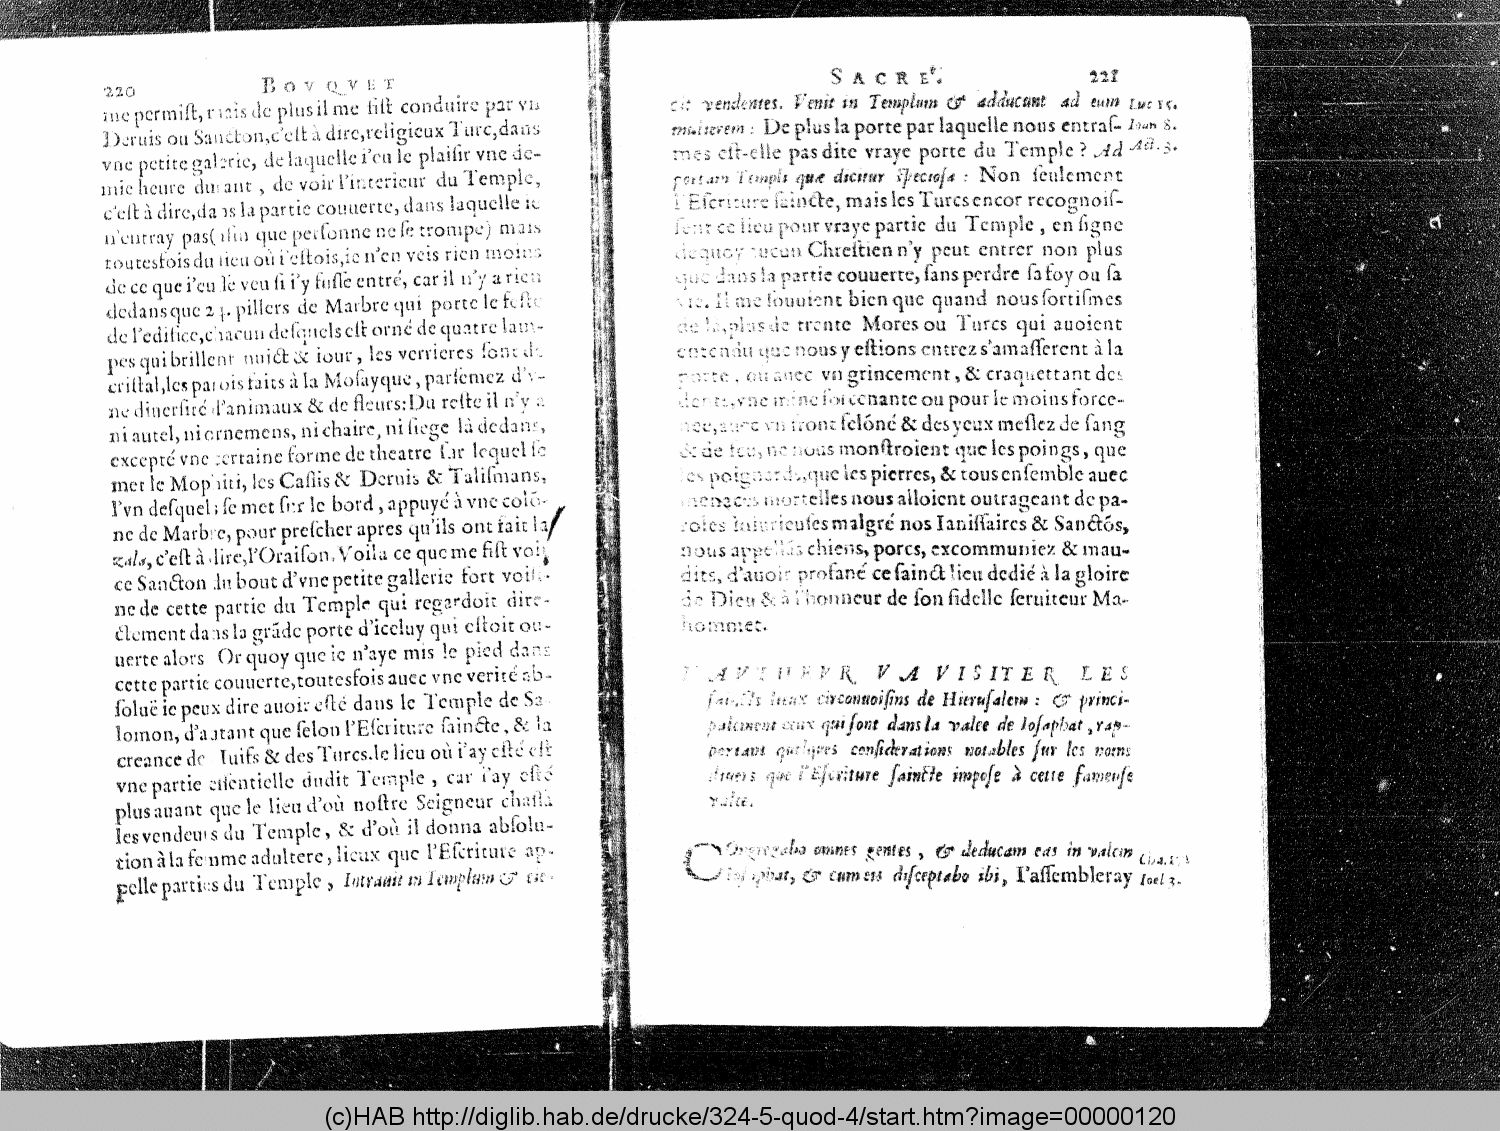 220 BOVQVET
me permist, mais de plus il me fist conduire par vn
Deruis ou Sancton, c'est à dire, religieux Turc, dans
vne petite galerie, de laquelle i'eu le plaisir vne de-
mie heure durant, de voir l'interieur du Temple,
c'est à dire, dans la partie couuerte, dans laquelle ie
n'entray pas (afin que personne ne se trompe) mais
toutesfois du lieu où i'estois, ie n'en veis rien moins
de ce que i'eu se veu si i'y fusse entré, car il n'y a rien
dedans que 24. pillers de Marbre qui porte le feste
de l'edifice, chacun desquels est orné de quatre lam-
pes qui brillent nuict & iour, les verrieres sont de
cristal, les parois faits à la Mosayque, parsemez d'v-
ne diuersité d'animaux & de fleurs: Du reste il n'y a
ni autel, ni ornemens, ni chaire, ni siege là dedans,
excepté vne certaine forme de theatre sur lequel se
met le Mophiti, les Cassis & Deruis & Talismans,
l'vn desquels se met sur le bord, appuyé à vne colõ-
ne de Marbre, pour prescher apres qu'ils ont fait la
zala, c'est à dire, l'Oraison. Voila ce que me fist voir
ce Sancton du bout d'vne petite gallerie fort voisi-
ne de cette partie du Temple qui regardoit dire-
ctement dans la grãde porte d'iceluy qui estoit ou-
uerte alors Or quoy que ie n'aye mis le pied dans
cette partie couuerte, toutesfois auec vne verité ab-
soluë ie peux dire auoir esté dans le Temple de Sa-
lomon, d'autant que selon l'Escriture saincte, & la
creance des Iuifs & des Turcs. le lieu où i'ay esté est
vne partie essentielle dudit Temple, car i'ay esté
plus auant que le lieu d'où nostre Seigneur chassa
les vendeurs du Temple, & d'où il donna absolu-
tion à la femme adultere, lieux que l'Escriture ap-
pelle parties du Temple, Intrauit in Templum & eie-
SACRE'. 221
cit vendentes. Venit in Templum & adducunt ad eum Luc 15.
mulierem: De plus la porte par laquelle nous entras- Ioan 8.
mes est-elle pas dite vraye porte du Temple? Ad Act. 3.
portam Templi quæ dicitur speciosa: Non seulement
l'Escriture saincte, mais les Turcs encor recognois-
sent ce lieu pour vraye partie du Temple, en signe
dequoy aucun Chrestien n'y peut entrer non plus
que dans la partie couuerte, sans perdre sa foy ou sa
vie. Il me souuient bien que quand nous sortismes
de là, plus de trente Mores ou Turcs qui auoient
entendu que nous y estions entrez s'amasserent à la
porte, ou auec vn grincement, & craquettant des
dents, vne mine forcenante ou pour le moins force-
nee, auec vn front felõné & des yeux meslez de sang
& de feu, ne nous monstroient que les poings, que
les poignards, que les pierres, & tous ensemble auec
menaces mortelles nous alloient outrageant de pa-
roles iniurieuses malgré nos Ianissaires & Sanctõs,
nous appellãs chiens, porcs, excommuniez & mau-
dits, d'auoir profané ce sainct lieu dedié à la gloire
de Dieu & à l'honneur de son fidelle seruiteur Ma-
hommet.
L'AVTHEVR VA VISITER LES
saincts lieux circonuoisins de Hierusalem: & princi-
palement ceux qui sont dans la valee de Iosaphat, rap-
portant quelques considerations notables sur les noms
diuers que l'Escriture saincte impose à cette fameuse
valee.
COngregabo omnes gentes, & deducam eas in valem
Iosaphat, & cum eis disceptabo ibi, I'assembleray Ioel 3.
(c)HAB http://diglib.hab.de/drucke/324-5-quod-4/start.htm?image=00000120